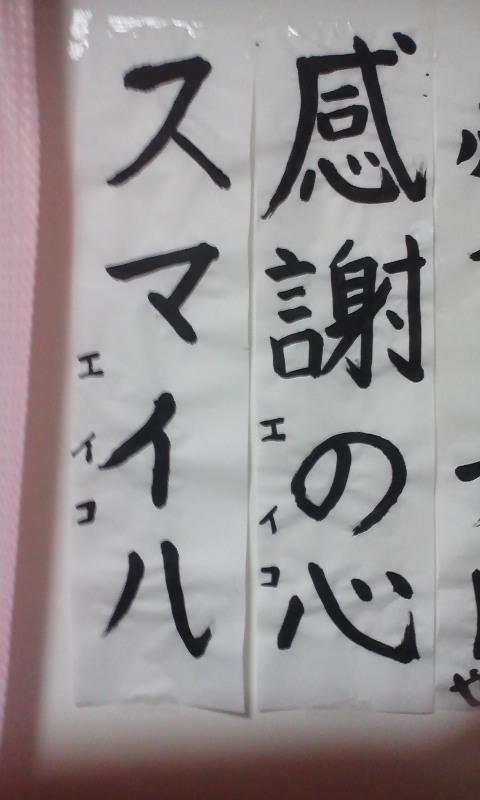 感謝の心
エイコ
スマイル
エイコ